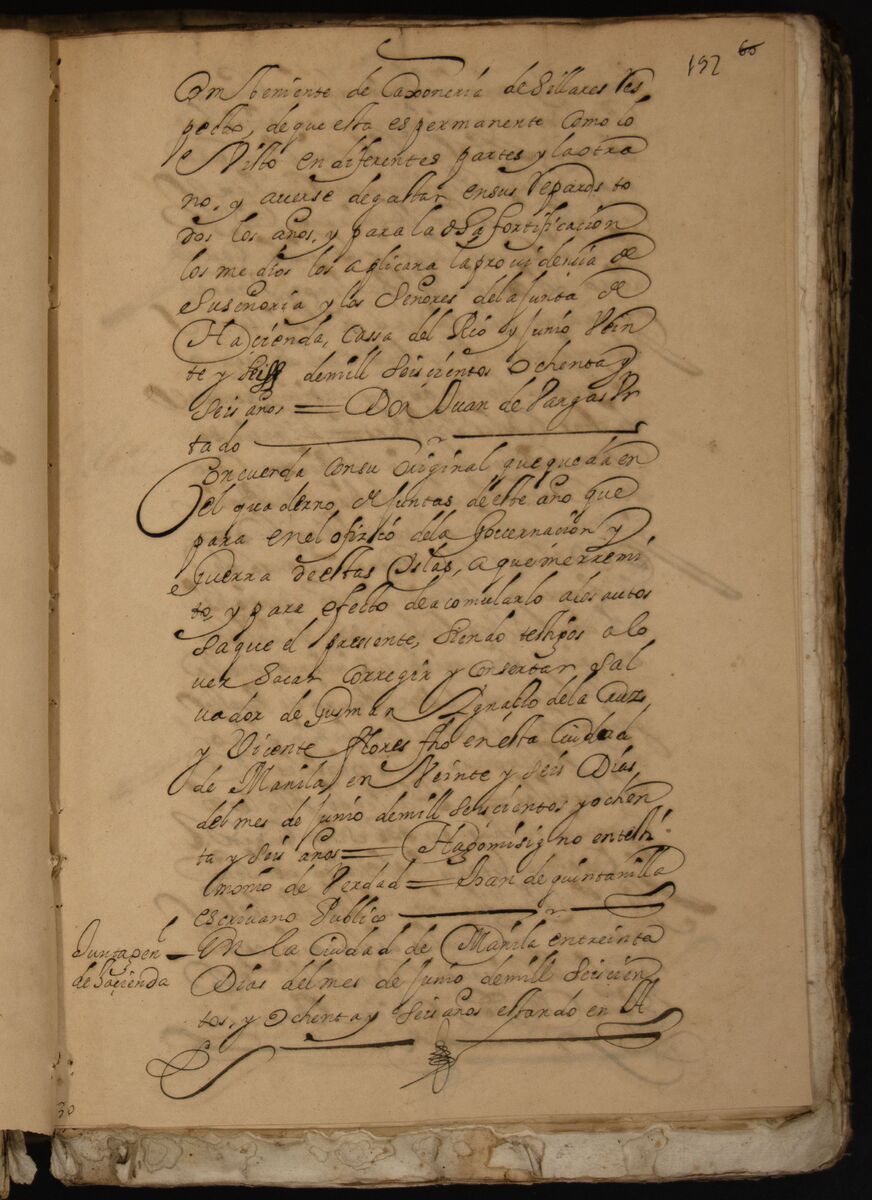 132 60
Combeniente de Caxoneria de Sillares Res
pecto, de que esta es permanente como lo
e visto en diferentes partes y la otra
no, y averse de gastar en sus Reparos to
dos los años, y para la dha fortificacion
los medios los aplicara la providensia de
Su señoria y los Señores de la Junta de
Hacienda, Cassa del Rio y Junio Vein
te y seis de mill Seiscientos Ochenta y
Seis años = Don Juan de Vargas Vr
tado
Concuerda con su Original que queda en
el quaderno de Juntas de este año que
para en el ofizio de la Governacion y
Guerra de estas Islas, a que me rremi
to, y para efecto de acomularlo a los autos
saque el pressente, siendo testigos a lo
ver Sacar Corregir y Consertar Sal
vador de Gusman Ygnacio de la Cruz
y Vicente flores fho en esta Ciudad
de Manila, en Veinte y seis Dias
del mes de Junio de mill Seiscientos y ochen
ta y seis años = Hago mi signo en testi
monio de Verdad = Juan de quintanilla
escrivano Publico
Junta gen.l
de haçienda
En la Ciudad de Manila en treinta
Dias del mes de Junio de mill Seiscien
tos, y Ochenta y Seis años estando en el
30